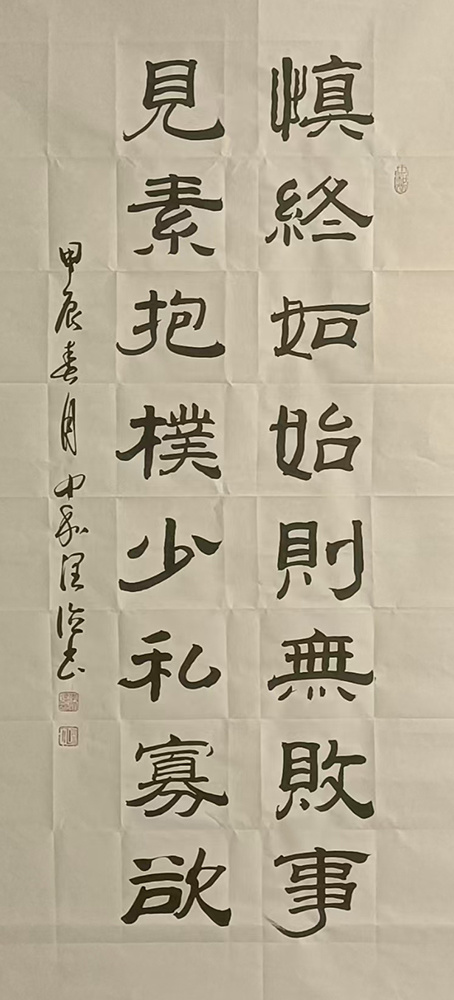 慎終如始則無敗事
見素抱樸少私寡欲
甲辰春月中和書